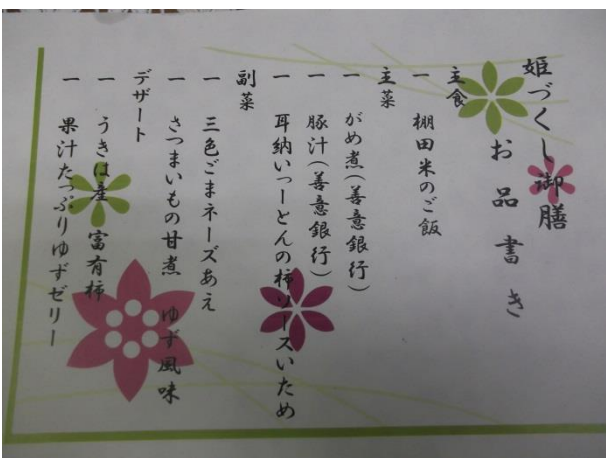 姫づくし御膳
お品書き
主食
一 棚田米のご飯
主菜
一 がめ煮(善意銀行)
一 豚汁(善意銀行)
一 耳納いっーとんの柿ソースいため
副菜
一 三色ごまネーズあえ
一 さつまいもの甘煮 ゆず風味
デザート
一 うきは産 富有柿
一 果汁たっぷりゆずゼリー